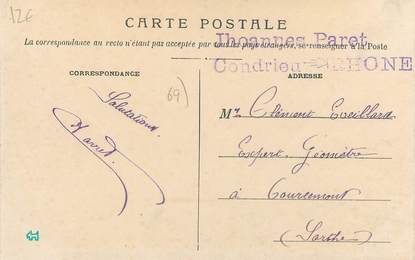 12€
CARTE POSTALE
Jhoannes Paret
La correspondance au recto n'étant pas acceptée par tous les pays étrangers, se renseigner à la Poste
Condrieu - RHONE
CORRESPONDANCE
ADRESSE
69)
Salutations
Mr Clément Eveillard
Expert Géomètre
à Courcemont
(Sarthe)